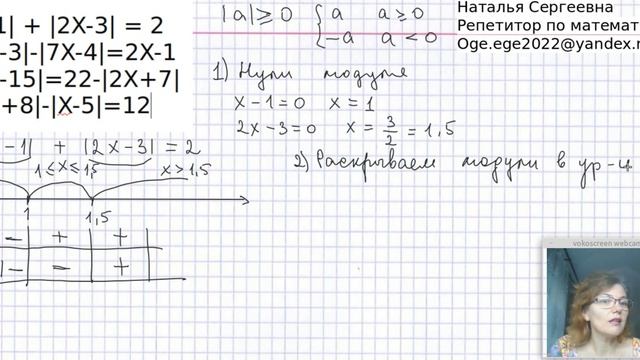 1| + |2X-3| = 2
-3|-|7X-4|=2X-1
-15|=22-|2X+7|
+8|-|X-5|=12
|a|≥0 { a a≥0
{ -a a<0
Наталья Сергеевна
Репетитор по математ
Oge.ege2022@yandex.r
1) Нули модуля
x-1=0 x=1
2x-3=0 x=3/2=1,5
2) Раскрываем модули в ур-и
-1| + |2x-3|=2
1≤x≤1,5 x>1,5
1 1,5
- + +
|- - +
vokoscreen webcam